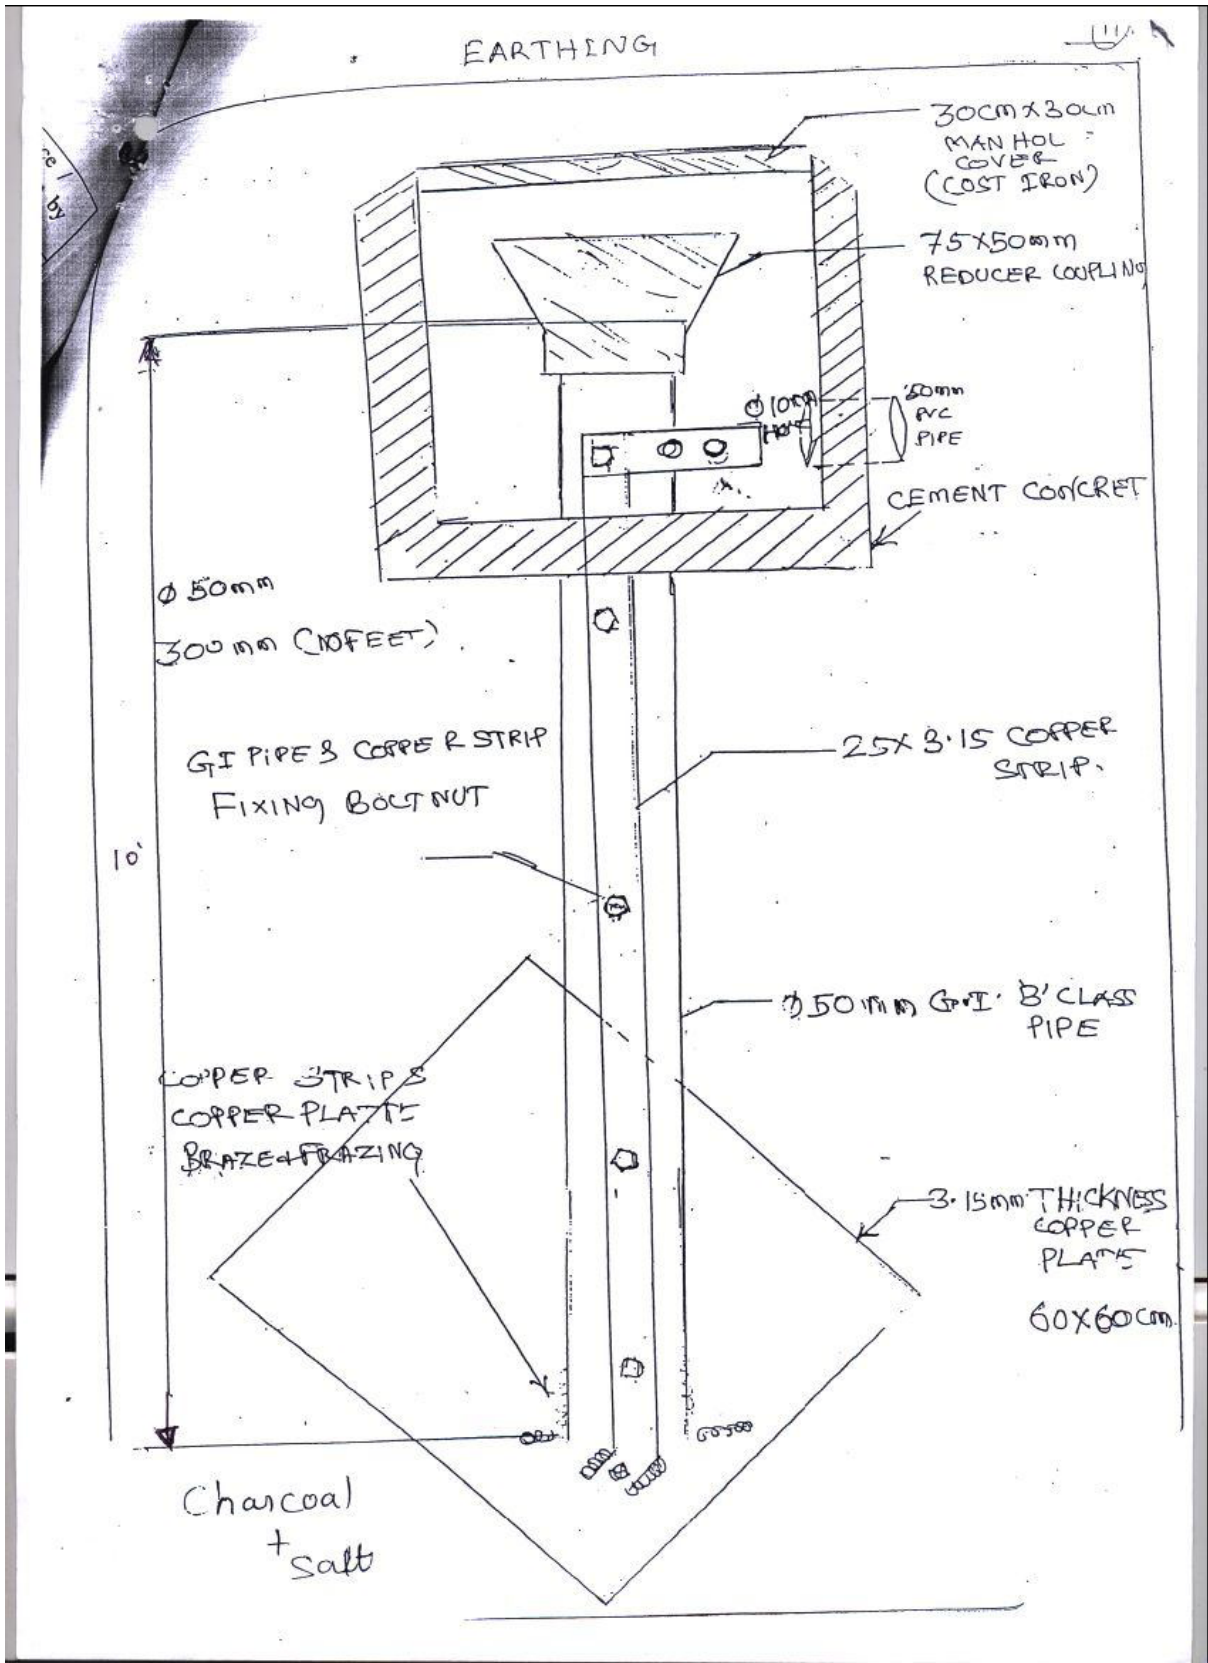 EARTHING
30cm X 30cm
MANHOL
COVER
(COST IRON)
75X50mm
REDUCER COUPLING
50mm
PVC
PIPE
CEMENT CONCRET
Ø 50mm
300mm (10FEET)
GI PIPE & COPPER STRIP
FIXING BOLT NUT
25X 3.15 COPPER
STRIP.
10'
50mm G.I. 'B' CLASS
PIPE
COPPER STRIP &
COPPER PLATE
3.15mm THICKNESS
COPPER
PLATE
60X60cm
Charcoal
+
Salt
by